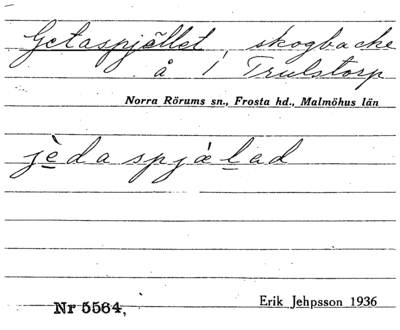 Getaspjället, skogbacke
å 1 Trulstorp
Norra Rörums sn., Frosta hd., Malmöhus län
jèdaspjàlad
Nr 5564,
Erik Jehpsson 1936